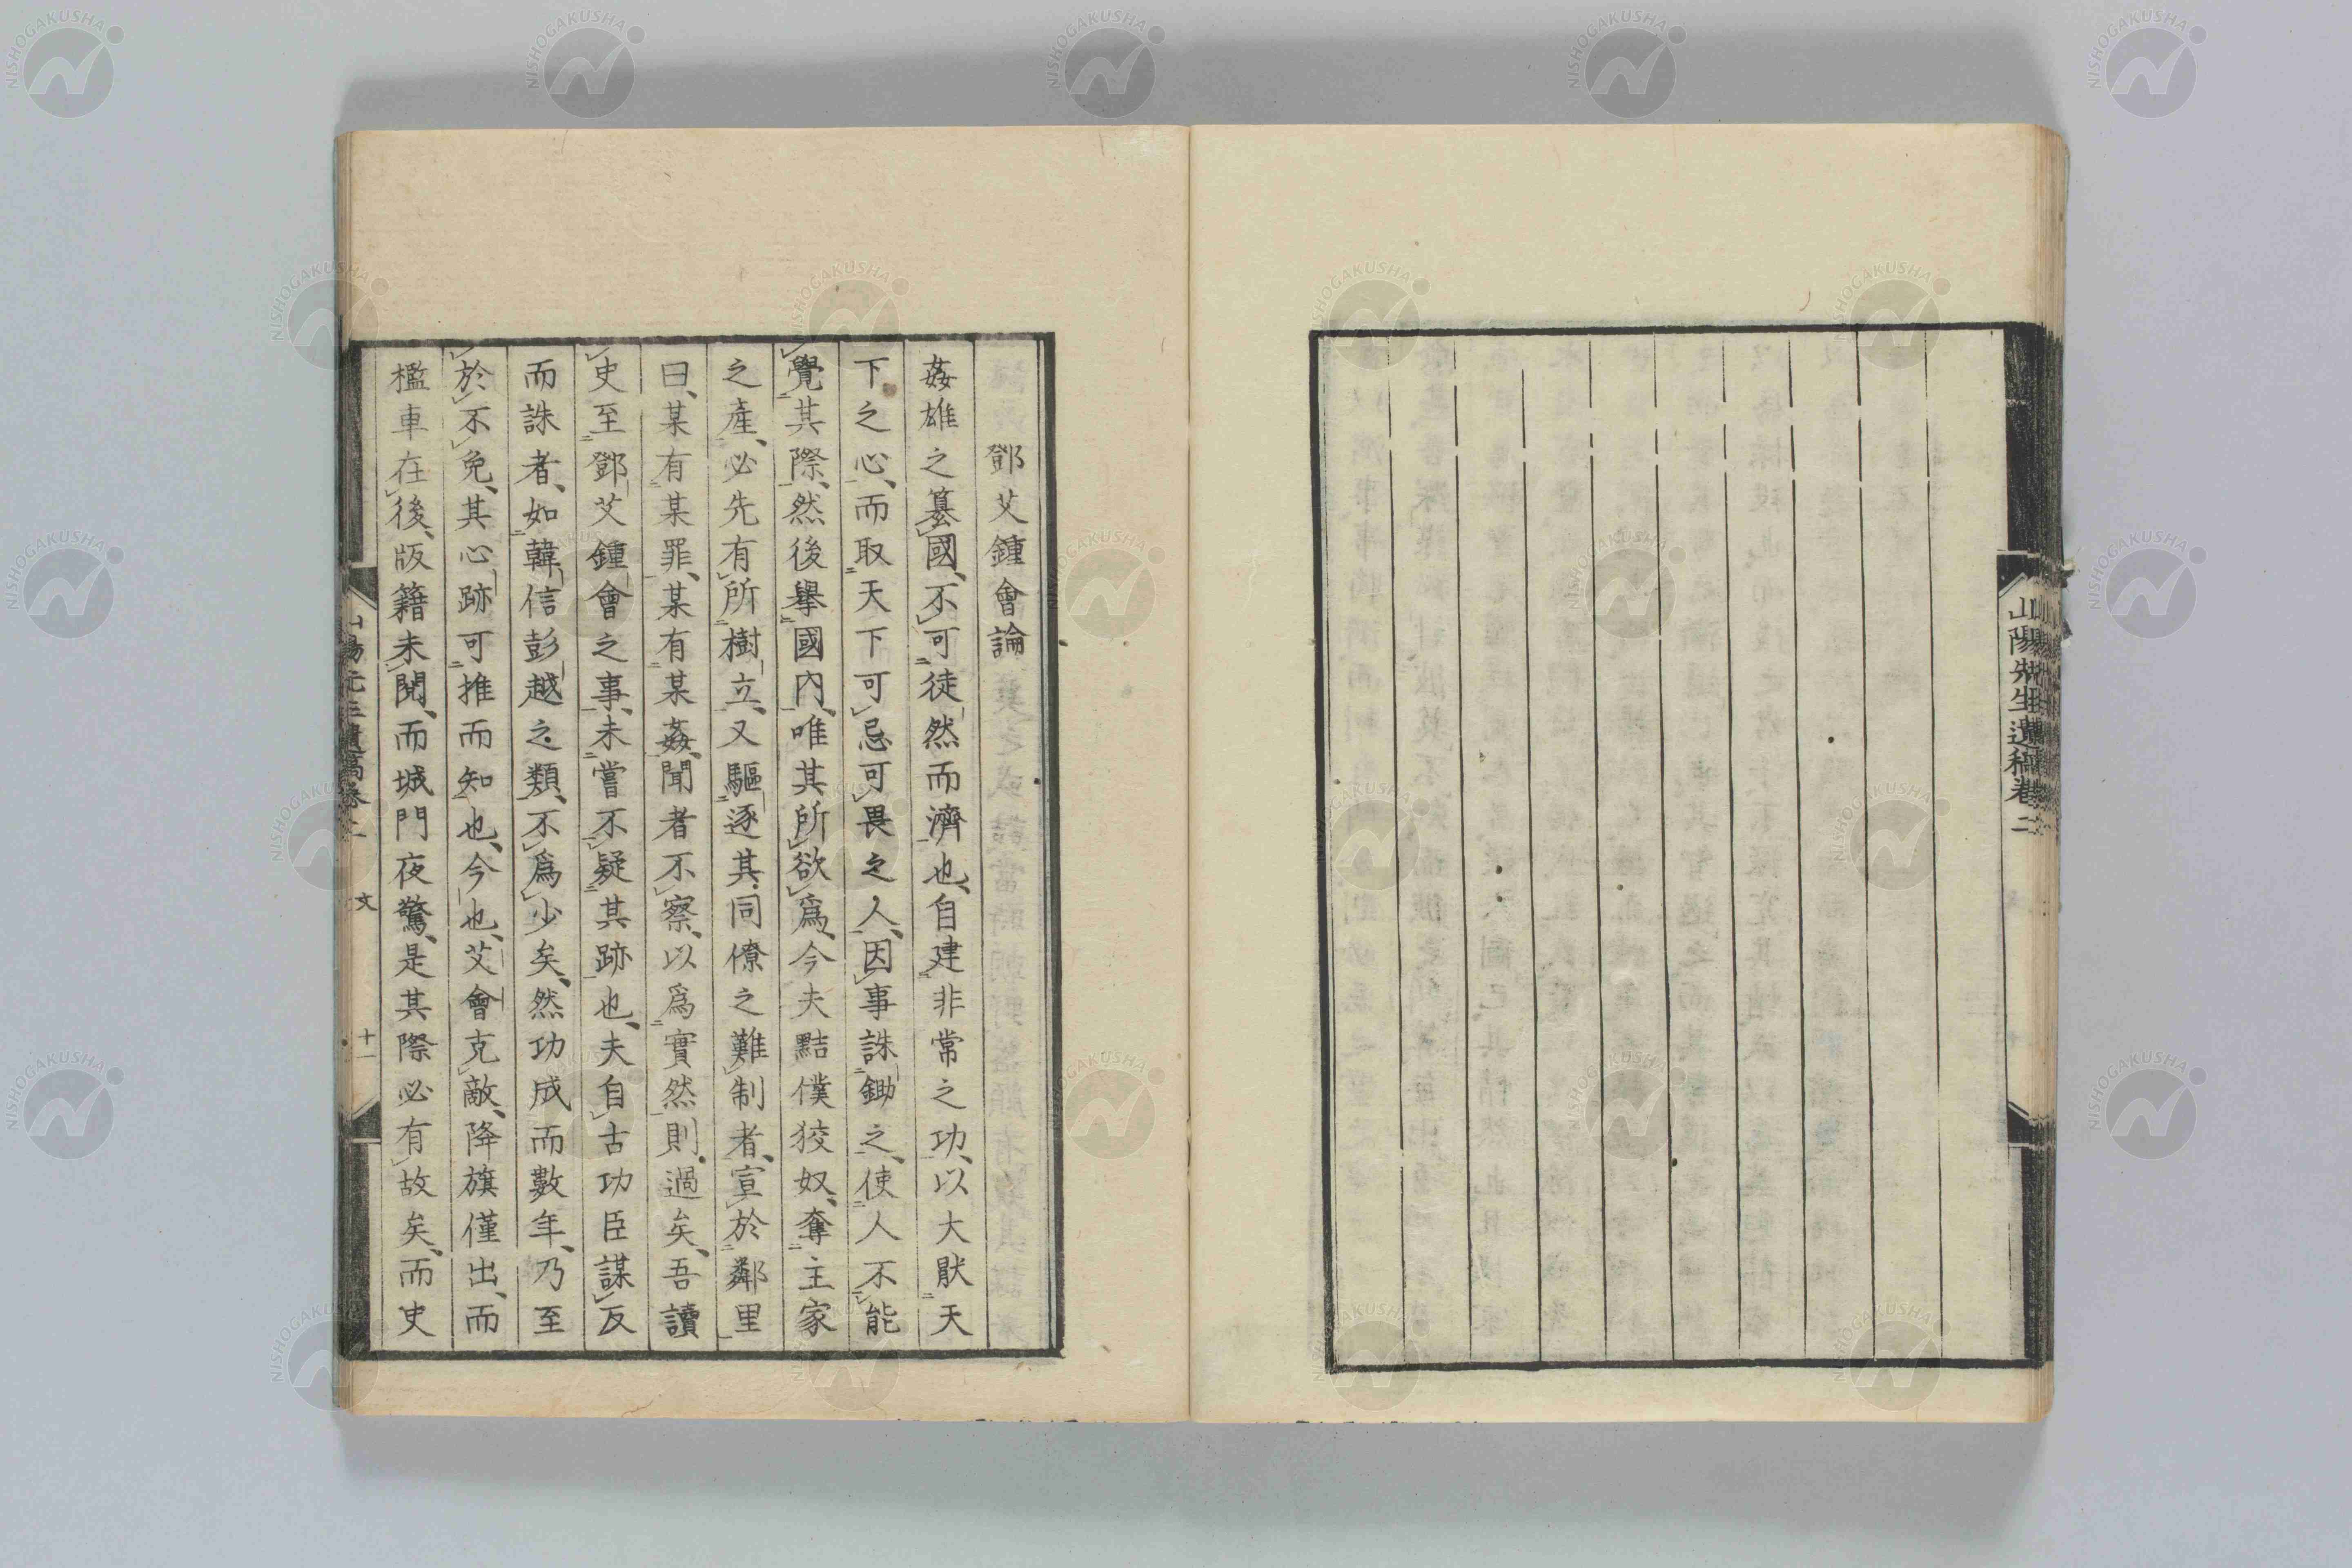 山陽先生遺稿卷二
鄧艾鍾會論
姦雄之簒國、不可徒然而濟也、自建非常之功、以大厭天
下之心、而取天下可忌可畏之人、因事誅鋤之、使人不能
覺其際、然後擧國內、唯其所欲爲、今夫黠僕狡奴、奪主家
之產、必先有所樹立、又驅逐其同僚之難制者、宣於鄰里
曰、某有某罪、某有某姦、聞者不察、以爲實然則過矣、吾讀
史至鄧艾鍾會之事、未嘗不疑其跡也、夫自古功臣謀反
而誅者、如韓信彭越之類、不爲少矣、然功成而數年、乃至
於不免、其心跡可推而知也、今也、艾會克敵、降旗僅出、而
檻車在後、版籍未閱、而城門夜驚、是其際必有故矣、而史
山陽先生遺稿卷二
文
十一
NISHOGAKUSHA